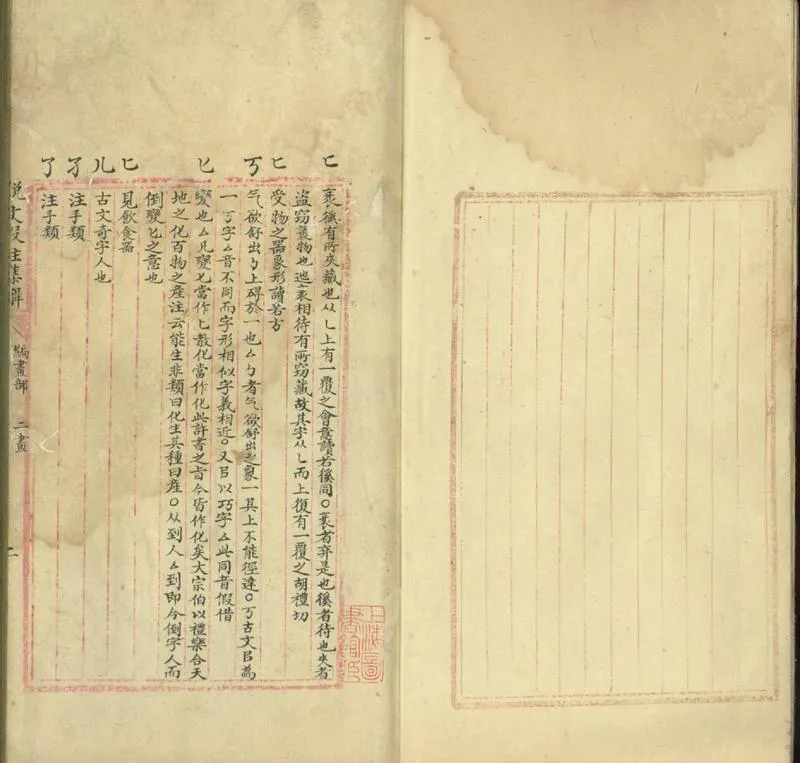 匸
衺徯有所夾藏也从乚上有一覆之會意讀若徯同○衺者弃是也徯者待也夾者
盜窃褱物也迆衺相待有所窃藏故其字从乚而上復有一覆之胡禮切
匚
受物之器象形讀若方
丂
气欲舒出㇉上碍於一也厶㇉者气欲舒出之象一其上不能徑達○丂古文㠯為
一亏字厶音不同而字形相似字義相近○又㠯以巧字厶此同音假借
匕
變也厶凡變匕當作匕教化當作化此許書之旨今皆作化矣大宗伯以禮樂合天
地之化百物之產注云能生非類曰化生其種曰產○从到人厶到即今倒字人而
倒變匕之意也
匕
見飲食器
儿
古文奇字人也
孑
注手類
了
注手類
說文段注集解
編畫部 二畫
二
上海圖書館印